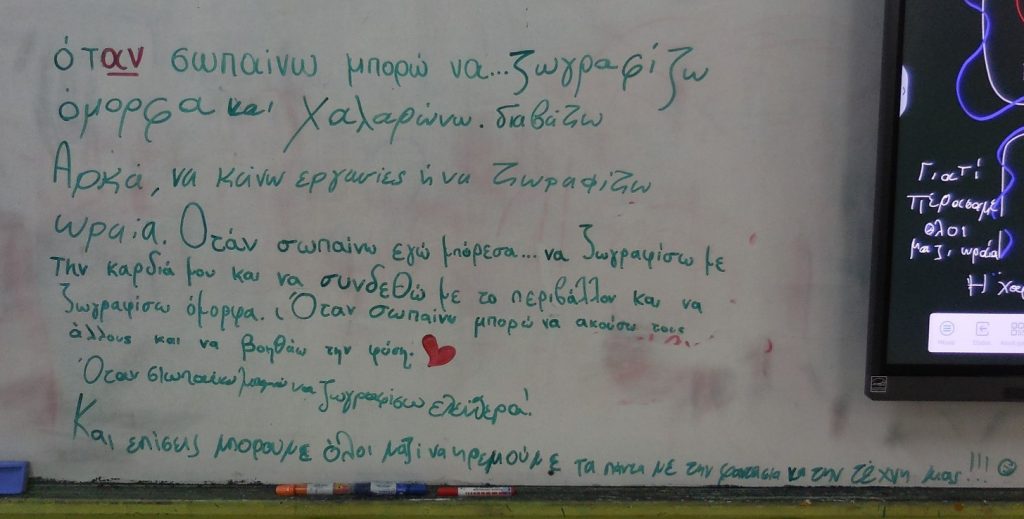 όταν σωπαίνω μπορώ να... ζωγραφίζω
όμορφα και χαλαρώνω. διαβάζω
Αρκά, να κάνω εργασίες ή να ζωγραφίζω
ωραία. Οτάν σωπαίνω εγώ μπόρεσα... να ζωγραφίσω με
την καρδιά μου και να συνδεθώ με το περιβάλλον και να
ζωγραφίσω όμορφα. Όταν σωπαίνω μπορώ να ακούσω τους
άλλους και να βοηθάω την φύση.
Όταν σιωπαίνω μπορώ να ζωγραφίσω ελεύθερα!
Και επίσεις μπορούμε όλοι μαζί να ηρεμούμε τα πάντα με την φαντασία και την τέχνη μας!!!
Γιατί
περάσαμε
όλοι
μαζί ωραία
Η χαρ